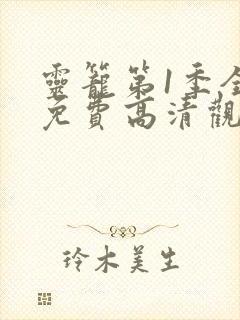 靈籠第1季全
免費高清觀
玲木美生